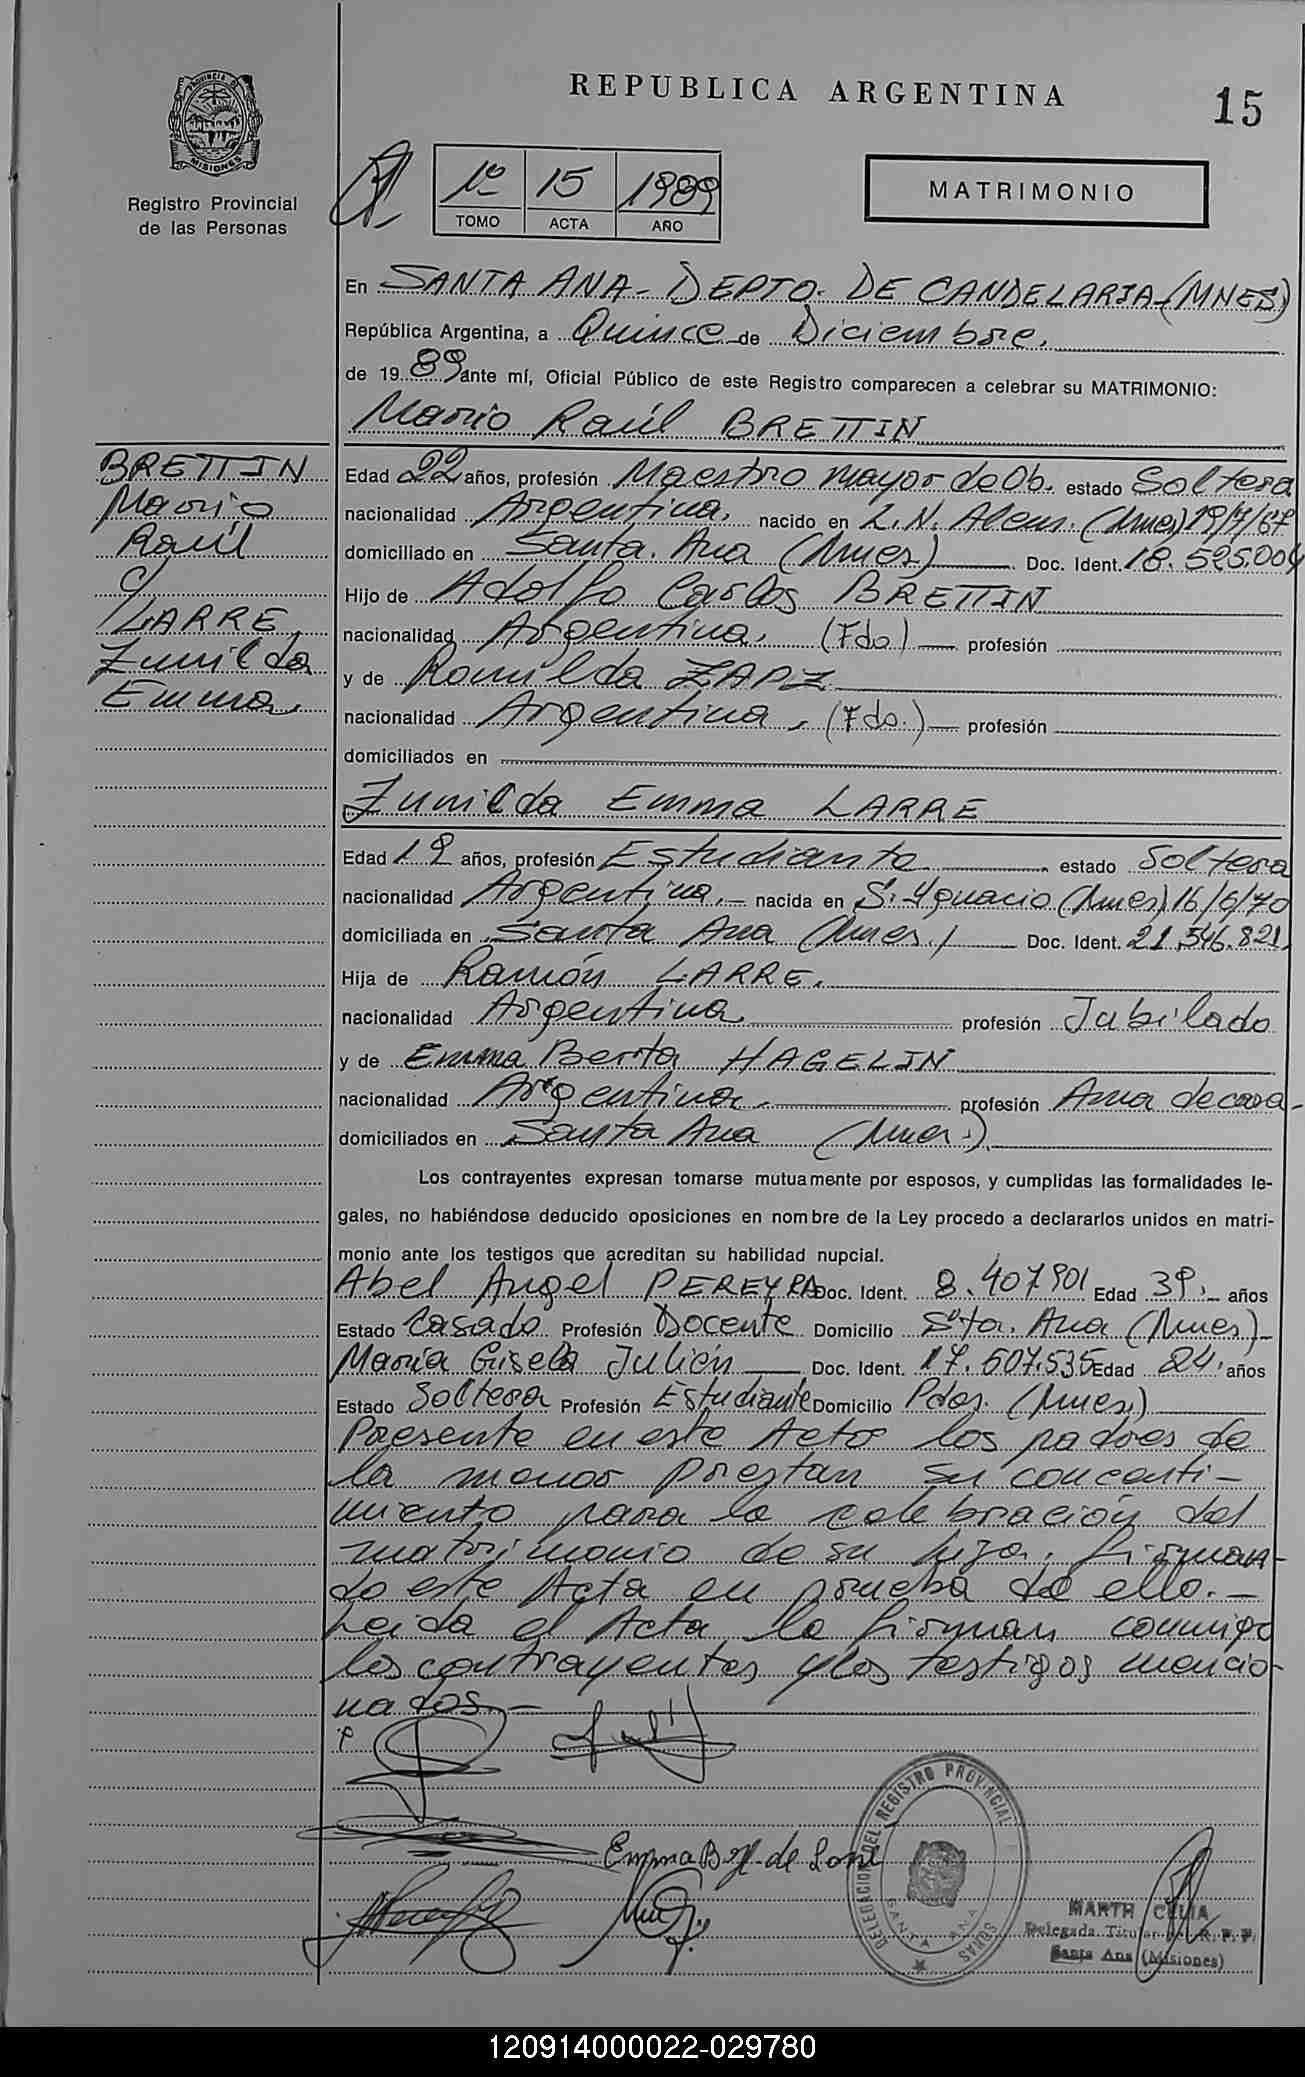 REPUBLICA ARGENTINA
15
PROVINCIA DE MISIONES
Registro Provincial
de las Personas
1º 15 1989
TOMO ACTA AÑO
MATRIMONIO
En SANTA ANA - DEPTO. DE CANDELARIA - (MNES)
República Argentina, a Quince de Diciembre.
de 19 89 ante mí, Oficial Público de este Registro comparecen a celebrar su MATRIMONIO:
Mario Raúl BRETTIN
BRETTIN
Mario
Raúl
c/
LARRE,
Zunilda
Emma.
Edad 22 años, profesión Maestro mayor de Ob. estado Soltera
nacionalidad Argentina. nacido en L.N. Alem. (Mnes) 19/7/67
domiciliado en Santa. Ana (Mnes) Doc. Ident. 18.525.004
Hijo de Adolfo Carlos BRETTIN
nacionalidad Argentina. (Fdo) profesión
y de Romilda ZAPZ
nacionalidad Argentina, (Fdo.) profesión
domiciliados en
Zunilda Emma LARRE
Edad 19 años, profesión Estudiante estado Soltera
nacionalidad Argentina. nacida en S. Ygnacio (Mnes) 16/6/70
domiciliada en Santa Ana (Mnes.) Doc. Ident. 21.546.821.
Hija de Ramón LARRE.
nacionalidad Argentina profesión Jubilado
y de Emma Berta HAGELIN
nacionalidad Argentina. profesión Ama de casa-
domiciliados en Santa Ana (Mnes.)
Los contrayentes expresan tomarse mutuamente por esposos, y cumplidas las formalidades le-
gales, no habiéndose deducido oposiciones en nombre de la Ley procedo a declararlos unidos en matri-
monio ante los testigos que acreditan su habilidad nupcial.
Abel Angel PEREYRA Doc. Ident. 8.407901 Edad 39. años
Estado Casado Profesión Docente Domicilio Sta. Ana (Mnes)-
María Gisela Julien Doc. Ident. 17.607.535 Edad 24. años
Estado Soltera Profesión Estudiante Domicilio Pdas. (Mnes.)
Presente en este Acto los padres de
la menor prestan su concenti-
miento para la celebración del
matrimonio de su hija, firman-
do este Acta en prueba de ello.-
Leida el Acta, la firman conmigo
los contrayentes y los testigos mencio-
nados.-
Emma B. H. de Larre
DELEGACION DEL REGISTRO PROVINCIAL
SANTA ANA
MARTH CELIA
Delegada Titular del R. P. P.
Santa Ana (Misiones)
120914000022-029780